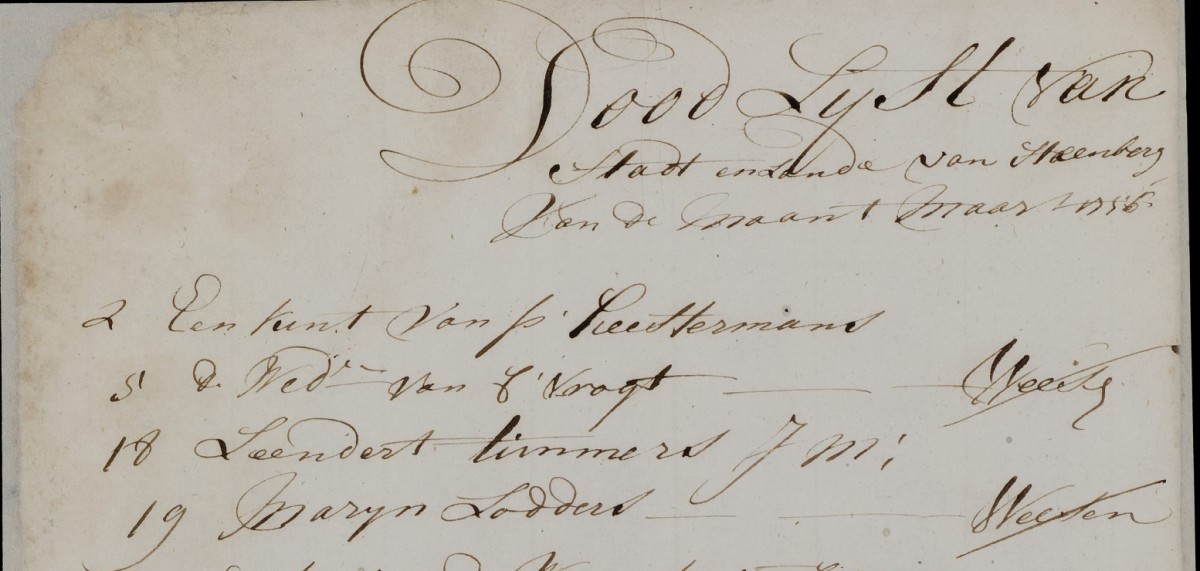 Dood Lyst van
Stadt en Lande van Steenberg
Van de maant Maart 1756
2 Een kint van p' Heestermans
5 de Wed.e van
18 Leendert timmers J M;
19 Maryn Lodders Weesen